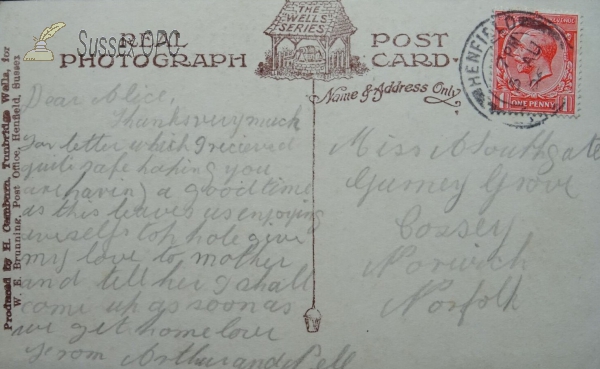 Sussex OPC
REAL
PHOTOGRAPH
THE
WELLS
SERIES
POST
CARD
Name & Address Only
HENFIELD
PM
AU
ONE PENNY
Produced by H. Camburn, Tunbridge Wells, for
W. E. Brunning, Post Office, Henfield, Sussex
Dear Alice,
Thanks very much
for letter which I recieved
quite safe hoping you
are havin) a good time
as this leaves us enjoying
ourselfs top hole give
my love to mother
and tell her I shall
come up as soon as
we get home love
from Arthur and Nell
Miss A Southgate
Gurney Grove
Cossey
Norwich
Norfolk